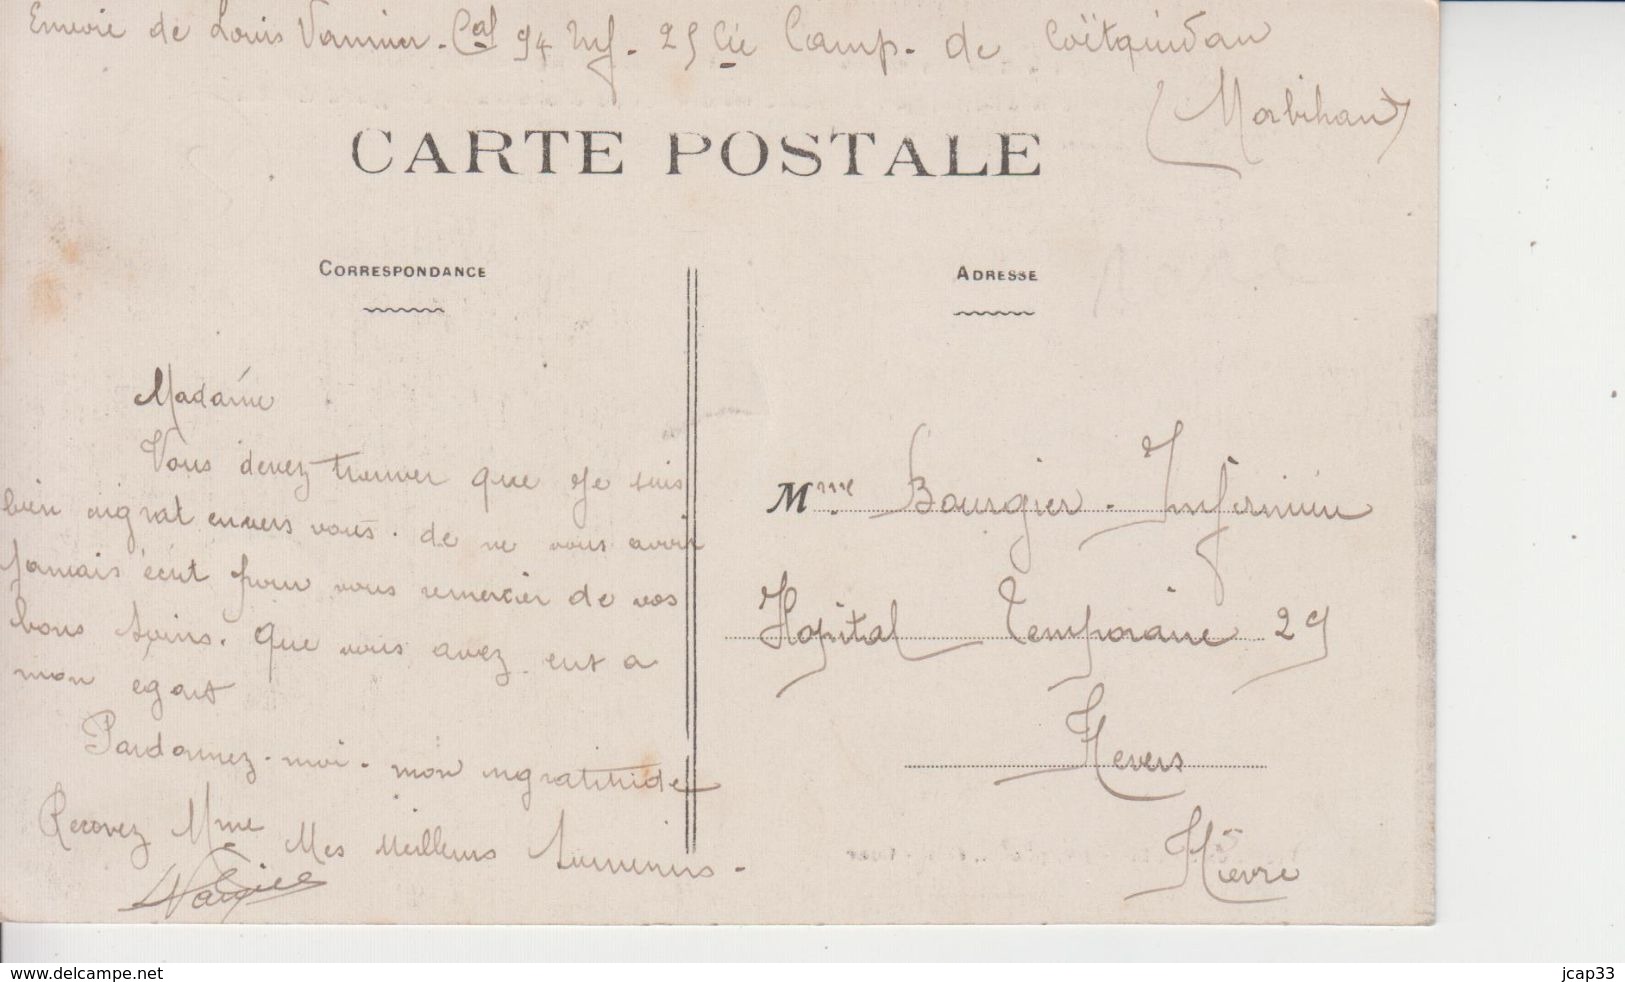 Envoie de Louis Vannier. Cal 94 Inf. 25 Cie Camp. de Coëtquidan
(Morbihan)
CARTE POSTALE
CORRESPONDANCE
ADRESSE
Madame
Vous devez trouver que Je suis
bien aigrat envers vous. de ne vous avoir
Jamais écrit pour vous remercier de vos
bons soins. Que vous avez eut a
mon egart
Pardonnez-moi. mon ingratitude
Recevez Mme Mes meilleurs Souvenirs.
Mme Bourgier. Infirmière
Hopital Temporaire 29
Nevers
Nièvre
www.delcampe.net
jcap33